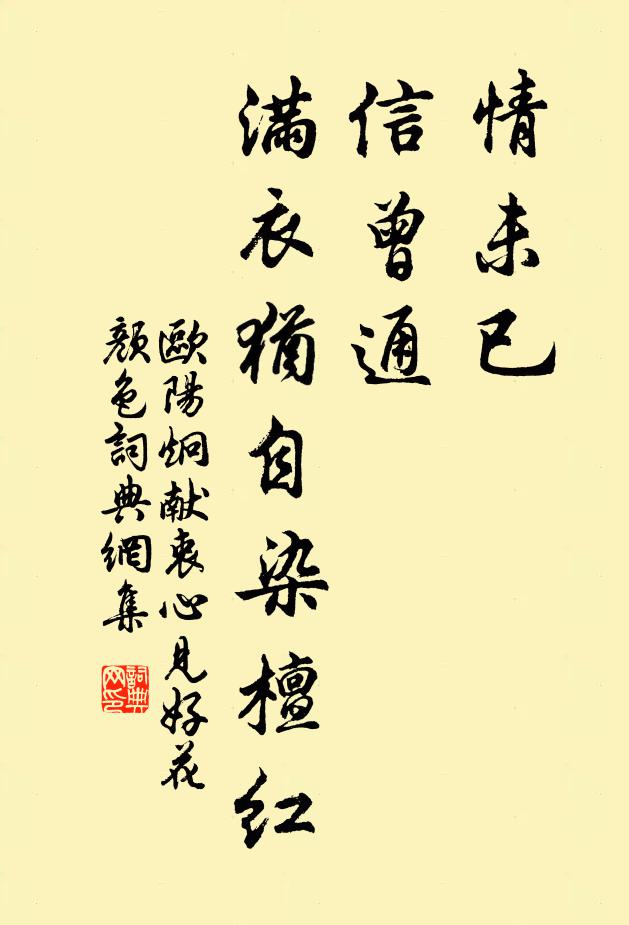 情未已
信曾通
滿衣猶自染檀紅
歐陽炯献衷心見好花
顏色詞典網集
詞典
网印